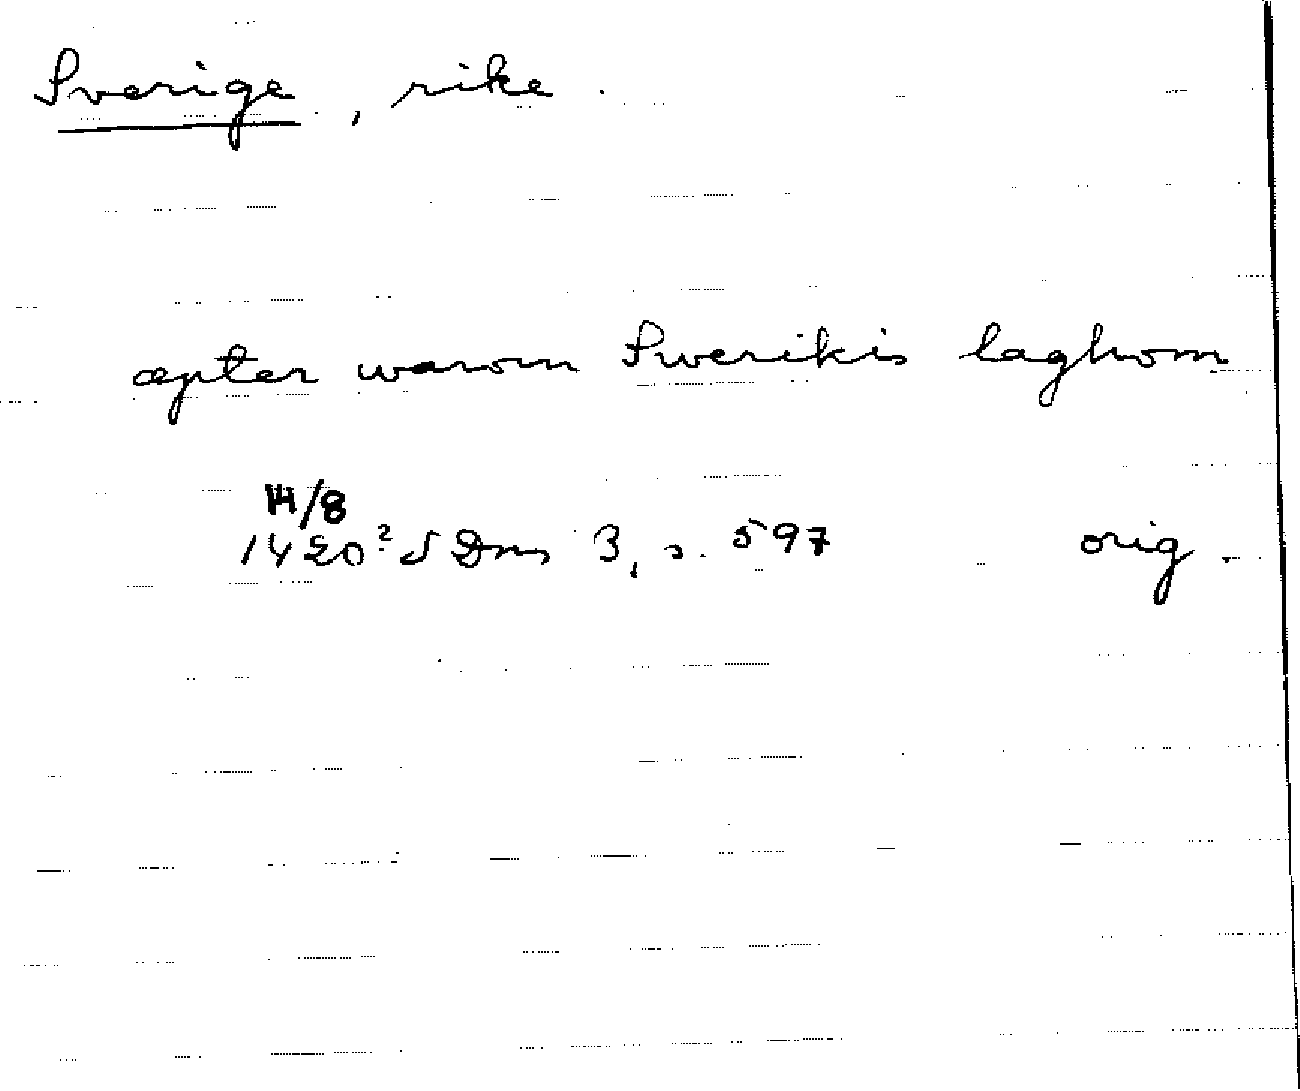 Sverige, rike.
æpter warom Swerikis laghom
14/8
1420? SDns 3, s. 597 orig.